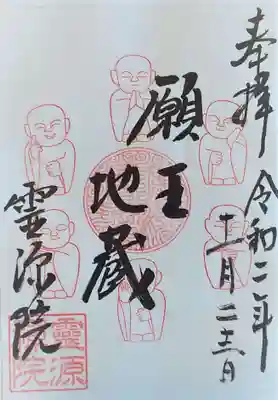 奉拝
令和二年
十一月二十三日
願王
地蔵
霊源院
靈源院